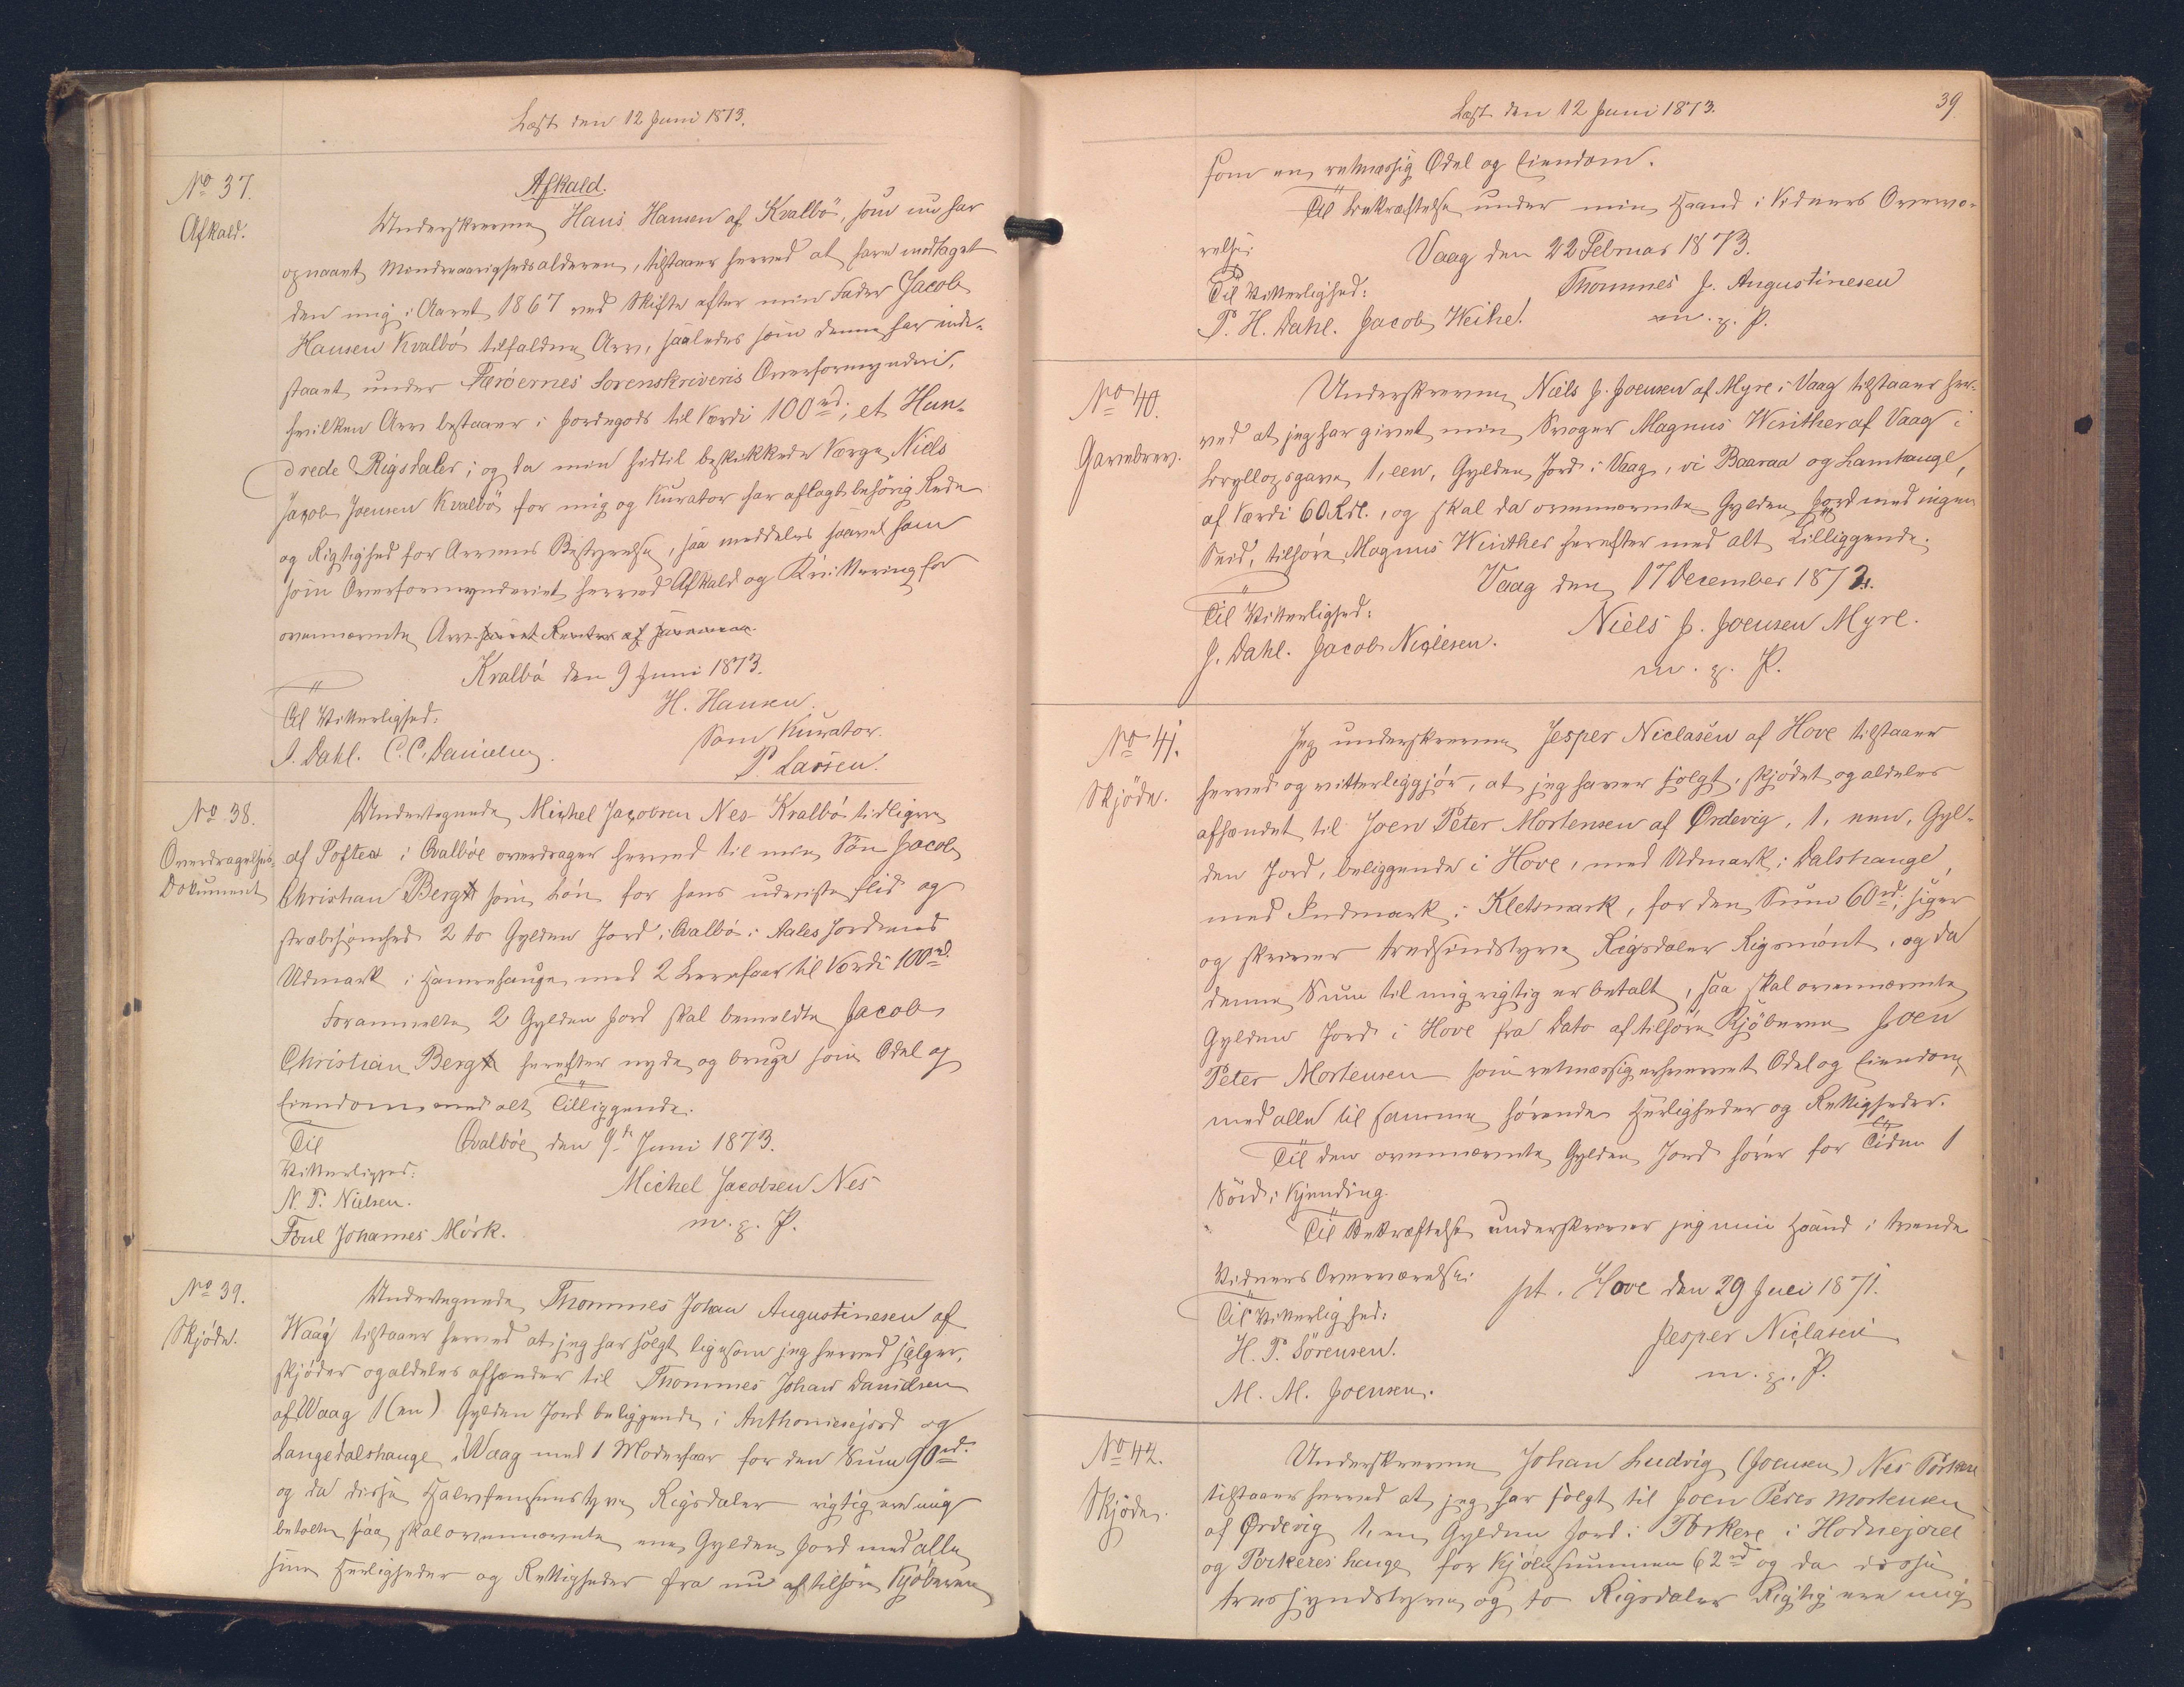 Læst den 12 Juni 1873.
No 37.
Afkald.
Afkald.
Underskrevne Hans Hansen af Kvalbö, som nu har
opnaaet Myndighedsalderen, tilstaaer herved at have modtaget
den mig i Aaret 1867 ved Skifte efter min Fader Jacob
Hansen Kvalbö tilfaldne Arv, saaledes som denne har inde-
staaet under Færöernes Sorenskriveris Overformynderi,
hvilken Arv bestaaer i Jordegods til Værdi 100 rd., et Hun-
drede Rigsdaler; og da min hidtil beskikkede Værge Niels
Jacob Joensen Kvalbö for mig og Kurator har aflagt behörig Rede
og Rigtighed for Arvens Bestyrelse, saa meddeles saavel ham
som Overformynderiet herved Afkald og Kvittering for
ovennævnte Arv
Kvalbö den 9 Juni 1873.
Til Vitterlighed:
H. Hansen.
J. Dahl. C. C. Danielsen.
Som Kurator.
P. Lassen.
No 38.
Overdragelses-
Dokument
Undertegnede Michel Jacobsen Nes Kvalbö tidligere
af Poften i Qvalböe overdrager herved til min Sön Jacob
Christian Bergh som Lön for hans udviste Flid og
stræbsomhed 2 to Gylden Jord i Qvalbö i Aales Jord med
Udmark i Hamrehauge med 2 Lævefaar til Værdi 100 rd.
Foranmeldte 2 Gylden Jord skal bemeldte Jacob
Christian Bergh herefter nyde og bruge som Odel og
Eiendom med alt Tilliggende.
Til
Qvalböe den 9de Juni 1873.
Vitterlighed:
N. P. Nielsen.
Michel Jacobsen Nes
Poul Johannes Mörk.
m. p. P.
No 39.
Skjöde.
Undertegnede Thommes Johan Augustinesen af
Waag tilstaaer herved at jeg har solgt ligesom jeg herved sælger,
skjöder og aldeles afhænder til Thommes Johan Danielsen
af Waag 1 (en) Gylden Jord beliggende i Anthonisejord og
Langedalshauge i Waag med 1 Moderfaar for den Sum 90 rd.
og da disse Halvfemsindstyve Rigsdaler rigtig ere mig
betalte saa skal ovennævnte ene Gylden Jord med alle
sine Herligheder og Rettigheder fra nu af tilhöre Kjöberen
Læst den 12 Juni 1873.
39.
som en retmæssig Odel og Eiendom.
Til Bekræftelse under min Haand i Vidners Overvæ-
relse.
Vaag den 22 Februar 1873.
Til Vitterlighed:
Thommes J. Augustinesen
P. H. Dahl. Jacob Weihe.
m. p. P.
No 40.
Gavebrev.
Underskrevne Niels J. Joensen af Myre i Vaag tilstaaer her-
ved at jeg har givet min Svoger Magnus Winther af Vaag i
Bryllupsgave 1, een, Gylden Jord i Vaag, i Baaraa og Lamhauge,
af Værdi 60 Rdl., og skal da ovennævnte Gylden Jord med ingen
Seid, tilhöre Magnus Winther herefter med alt Tilliggende.
Vaag den 17 December 1872.
Til Vitterlighed:
Niels J. Joensen Myre.
J. Dahl. Jacob Niclesen.
m. p. P.
No 41.
Skjöde.
Jeg underskrevne Jesper Niclasen af Hove tilstaaer
herved og vitterliggjör, at jeg haver solgt, skjödet og aldeles
afhændet til Joen Peter Mortensen af Ørdevig, 1, een, Gyl-
den Jord, beliggende i Hove, med Udmark i Dalshauge,
med Indmark i Kletsmark, for den Sum 60 rd., siger
og skriver tredsindstyve Rigsdaler Rigsmönt, og da
denne Sum til mig rigtig er betalt, saa skal ovennævnte
Gylden Jord i Hove fra Dato af tilhöre Kjöberen Joen
Peter Mortensen som retmæssig erhvervet Odel og Eiendom,
med alle til samme hörende Herligheder og Rettigheder.
Til den ovennævnte Gylden Jord hörer for Tiden 1
Söid i Kjending.
Til Bekræftelse underskriver jeg min Haand i tvende
Vidners Overværelse.
pt. Hove den 29 Juli 1871.
Til Vitterlighed:
H. P. Sörensen.
Jesper Niclasen
m. p. P.
M. M. Joensen.
No 42.
Skjöde.
Underskrevne Johan Ludvig (Joensen) Nes Porkere
tilstaaer herved at jeg har solgt til Joen Peter Mortensen
af Ørdevig 1, en Gylden Jord i Porkere i Hodnejord
og Porkereshauge for Kjöbesummen 62 rd og da disse
tresindstyve og to Rigsdaler Rigtig ere mig